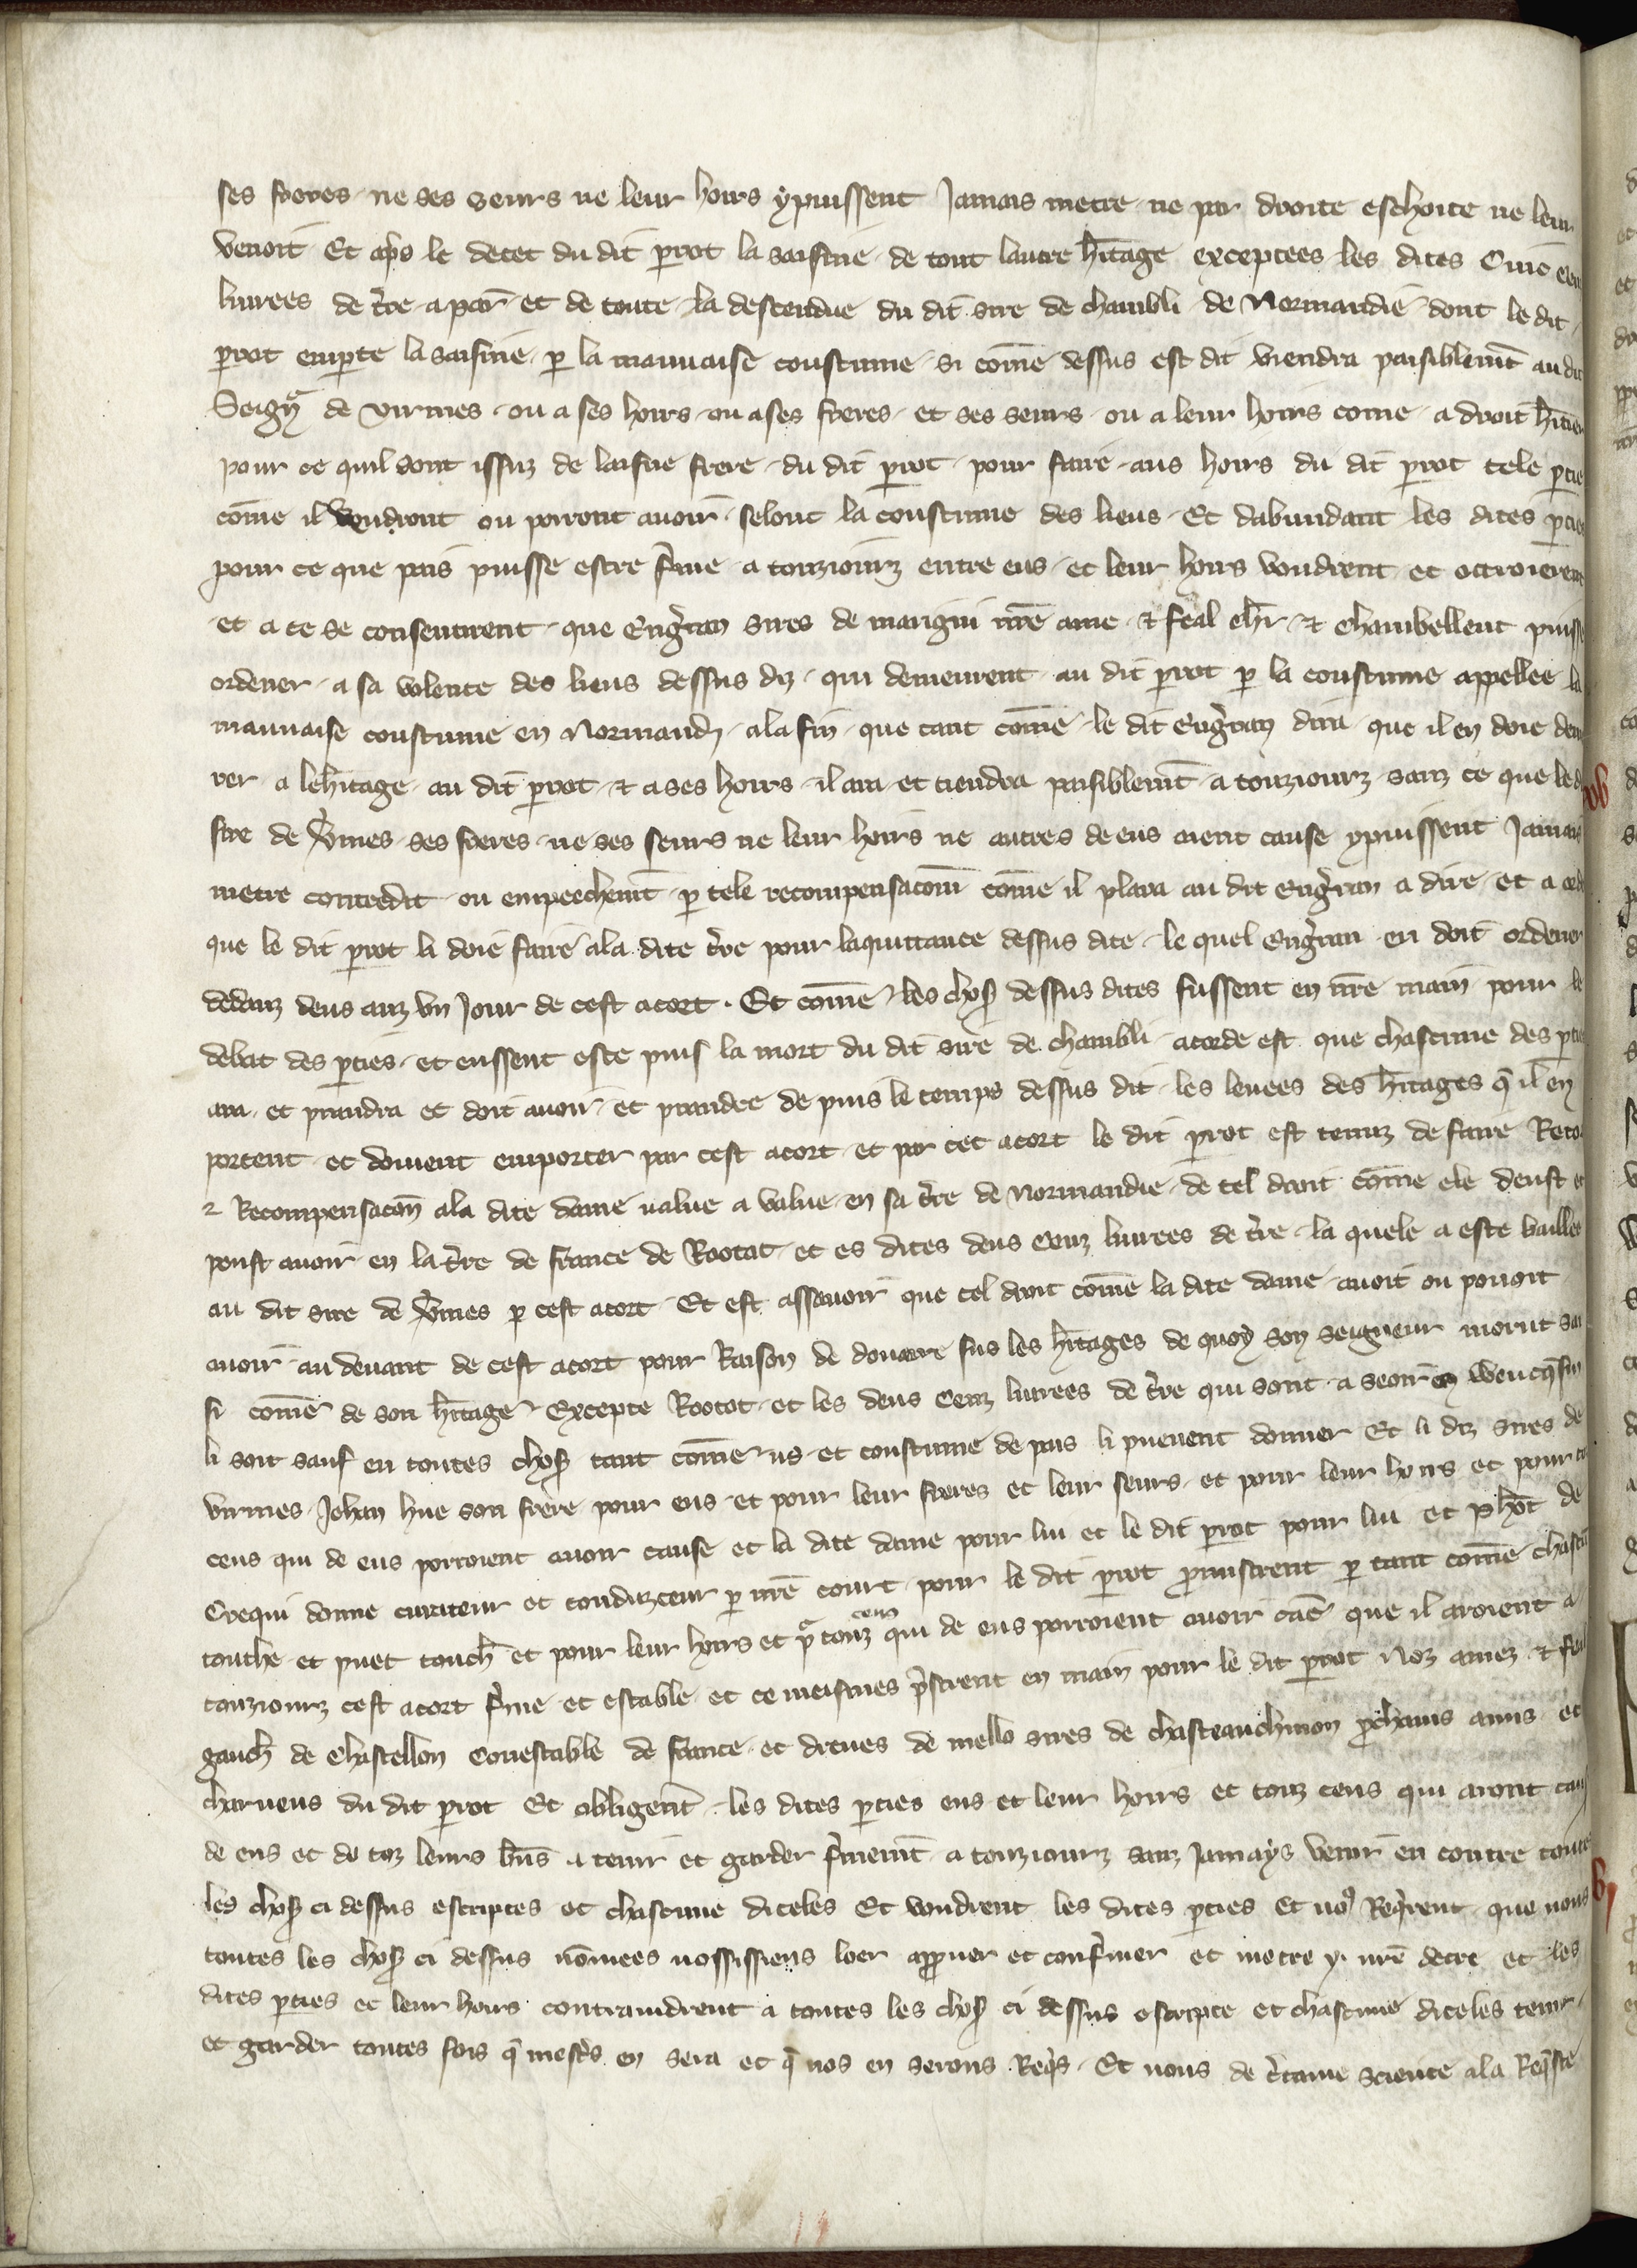 ses freres ne ses seurs ne leur hoirs ypuissent Jamais metre ne par droite eschoite ne leur
venoit Et apres le decet du dit perrot la saisine de tout lautre heritage exceptees les dites Cinc cenz
livrees de terre a par et de toute la descendue du dit sire de chambli de Normandie dont le dit
perrot emporte la saisine par la mauvaise coustume si comme dessus est dit viendra paisiblement au dit
Seigneur de virmes ou a ses hoirs ou a ses freres et ses seurs ou a leur hoirs come a droit heritier
pour ce quil sont issuz de laisne frere du dit perrot pour faire aus hoirs du dit perrot tele partie
comme il voudront ou porront avoir selonc la coustume des lieus Et dabundant les dites parties
pour ce que pais puisse estre ferme a touziourz entre eus et leur hoirs voudrent et octroierent
et a ce se consentirent que Engerran sires de marigni nostre ame et feal chevalier et chambellenc puisse
ordener a sa volente des lieus dessus diz qui demeurent au dit perrot par la coustume appellee la
mauvaise coustume en Normandie a la fin que tant comme le dit Engerran dira que il en doie demou
rer a leheritage au dit perrot et a ses hoirs il ara et tiendra paisiblement a touziourz sanz ce que le dit
sire de virmes ses freres ne ses seurs ne leur hoirs ne autres de eus aient cause ypuissent Jamais
metre contredit ou empeechement par tele recompensacion comme il plaira au dit Engerran a dire et a
que le dit perrot li doie faire a la dite terre pour laquittance dessus dite le quel Engerran en doit ordener
dedanz deus anz un Jour de cest acort Et comme les choses dessus dites fussent en nostre main pour le
debat des parties et eussent este puis la mort du dit sire de chambli acorde est que chascune des parties
ara et prandra et doit avoir et prandre de puis le temps dessus dit les levees des heritages que il en
portent et doivent emporter par cest acort et par cet acort le dit perrot est tenuz de faire Reto
et Recompensacion a la dite dame value a value en sa terre de Normandie de tel droit comme ele deust et
peust avoir en la terre de france de Rootat et es dites deus Cenz livrees de terre la quele a este baillee
au dit sire de virmes par cest acort Et est assavoir que tel droit comme la dite dame avoit ou pouoit
avoir au devant de cest acort pour Raison de douaire sus les heritages de quoy son seigneur morut sai
si comme de son heritage Excepte Rootot et les deus Cenz livrees de terre qui sont a seoir en Weucquesin
li soit sauf en toutes choses tant comme us et coustume de pais li pueuent donner Et li diz sires de
virmes Johan hue son frere pour eus et pour leur freres et leur seurs et pour leur hoirs et pour
ceus qui de eus porroient avoir cause et la dite dame pour lui et le dit perrot pour lui et de
Crequi donne curateur et conduizeeur par nostre court pour le dit perrot promistrent par tant comme chascun
touche et puet touchier et pour leur hoirs et pour touz ceus qui de eus porroient avoir cause que il aroient a
touziourz cest acort ferme et estable et ce meismes pristrent en main pour le dit perrot Noz amez et feal
gauchier de Chastellon Connestable de france et dreues de mello sires de chasteauchinon prochains amis et
charneus du dit perrot Et obligerent les dites parties eus et leur hoirs et touz ceus qui aront cause
de eus et de toz leurs biens a tenir et garder fermement a touziourz sanz Jamays venir en contre toutes
les choses ci dessus escriptes et chascune diceles Et voudrent les dites parties Et nous Requirent que nous
toutes les choses ci dessus nommees vossissiens loer aprouver et confermer et metre y nostre decre et les
dites parties et leur hoirs contraindrent a toutes les choses ci dessus escripte et chascune diceles tenir
et garder toutes fois que mestiers en sera et que nos en serons Requis Et nous de certaine science a la Requeste